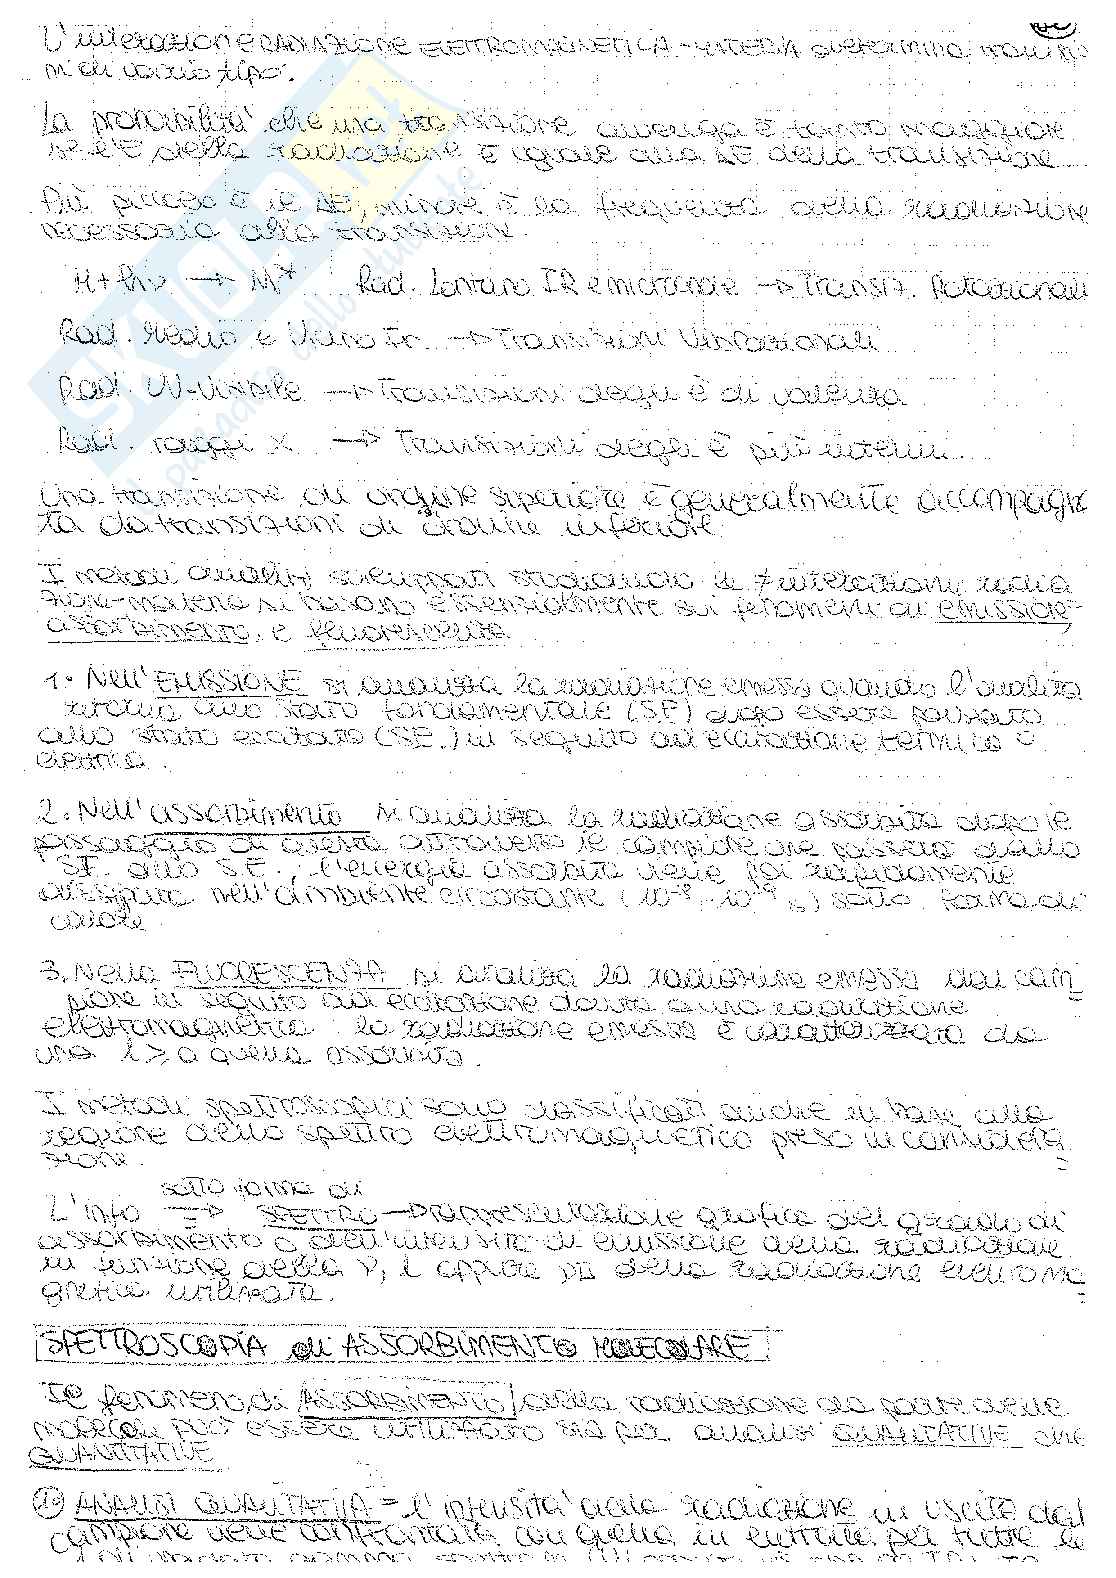 L'interazione RADIAZIONE ELETTROMAGNETICA - MATERIA determina transizio
ni di vario tipo.
La probabilità che una transizione avvenga è tanto maggiore
se l'E della radiazione è uguale alla ΔE della transizione
Più piccolo è il ΔE, minore è la frequenza della radiazione
necessaria alla transizione.
M + hν → M* Rad. Lontano IR e microonde → Transiz. Rotazionali
Rad. Medio e Vicino Ir → Transizioni Vibrazionali
Rad. UV-Visibile → Transizioni degli ē di valenza
Rad. raggi X → Transizioni degli ē più interni
Una transizione di ordine superiore è generalmente accompagna
ta da transizioni di ordine inferiore
I metodi analitici sviluppati studiando le ≠ interazioni radia
zione-materia si basano essenzialmente sui fenomeni di emissione,
assorbimento, e fluorescenza
1. Nell'EMISSIONE si analizza la radiazione emessa quando l'analita
ritorna allo stato fondamentale (S.F) dopo essere passato
allo stato eccitato (S.E.) in seguito ad eccitazione termica o
elettrica.
2. Nell'assorbimento si analizza la radiazione assorbita dopo il
passaggio di questa attraverso il campione che passerà dallo
S.F. allo S.E., l'energia assorbita viene poi rapidamente
dissipata nell'ambiente circostante (10⁻⁸ - 10⁻⁹ s) sotto forma di
calore.
3. Nella FLUORESCENZA si analizza la radiazione emessa dal cam
pione in seguito ad eccitazione dovuta a una radiazione
elettromagnetica. la radiazione emessa è caratterizzata da
una λ > a quella assorbita.
I metodi spettroscopici sono classificati anche in base alla
regione dello spettro elettromagnetico preso in considera
zione.
sotto forma di
L'info ⇒ SPETTRO → rappresentazione grafica del grado di
assorbimento o dell'intensità di emissione della radiazione
in funzione della ν, λ oppure della radiazione elettroma
gnetica utilizzata.
SPETTROSCOPIA di ASSORBIMENTO MOLECOLARE
Il fenomeno di ASSORBIMENTO della radiazione da parte delle
molecole può essere utilizzato sia per analisi QUALITATIVE che
QUANTITATIVE
1) ANALISI QUALITATIVA = l'intensità della radiazione in uscita dal
campione viene confrontata con quella in entrata per tutte le
SKUOLA.net
il paradiso dello studente